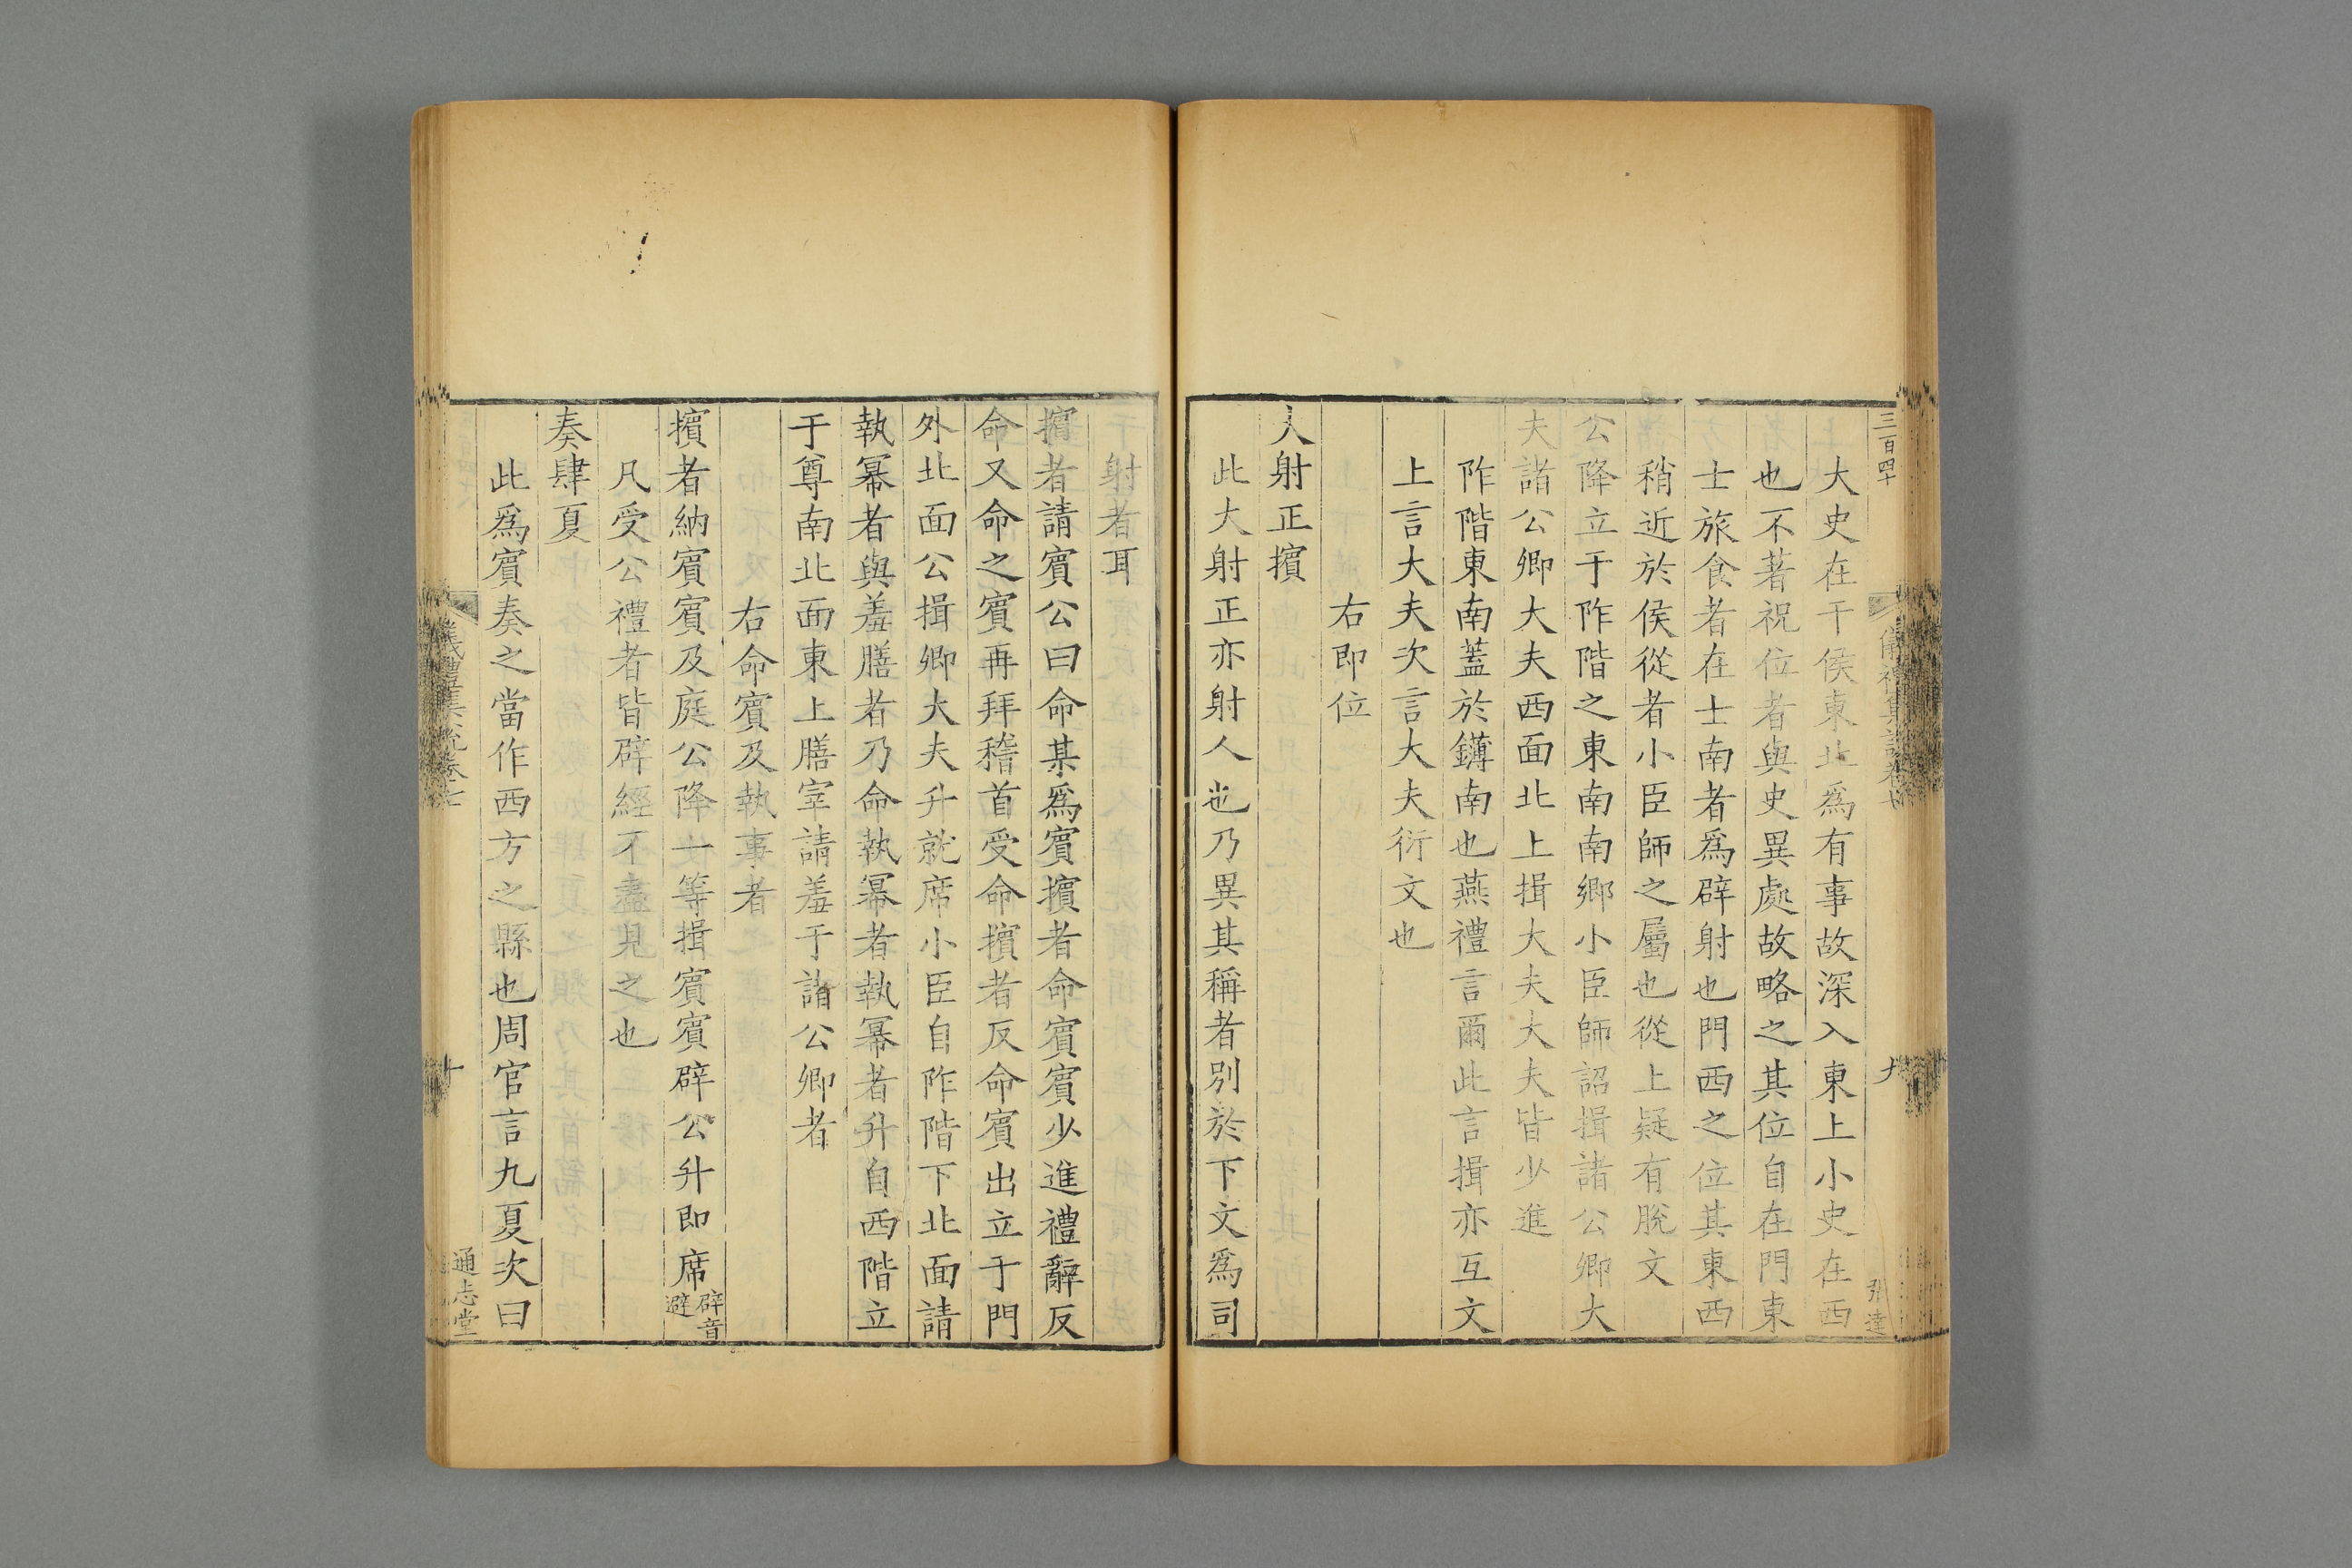 三百四十
儀禮集說卷七
九
大史在干侯東北爲有事故深入東上小史在西
也不著祝位者與史異處故略之其位自在門東
士旅食者在士南者爲辟射也門西之位其東西
稍近於侯從者小臣師之屬也從上疑有脫文
公降立于阼階之東南南鄉小臣師詔揖諸公卿大
夫諸公卿大夫西面北上揖大夫大夫皆少進
阼階東南蓋於鑮南也燕禮言爾此言揖亦互文
上言大夫次言大夫衍文也
右即位
大射正擯
此大射正亦射人也乃異其稱者別於下文爲司
射者耳
擯者請賓公曰命某爲賓擯者命賓賓少進禮辭反
命又命之賓再拜稽首受命擯者反命賓出立于門
外北面公揖卿大夫升就席小臣自阼階下北面請
執冪者與羞膳者乃命執冪者執冪者升自西階立
于尊南北面東上膳宰請羞于諸公卿者
右命賓及執事者
擯者納賓賓及庭公降一等揖賓賓辟公升即席辟音避
凡受公禮者皆辟經不盡見之也
奏肆夏
此爲賓奏之當作西方之縣也周官言九夏次曰
儀禮集說卷七
十
通志堂